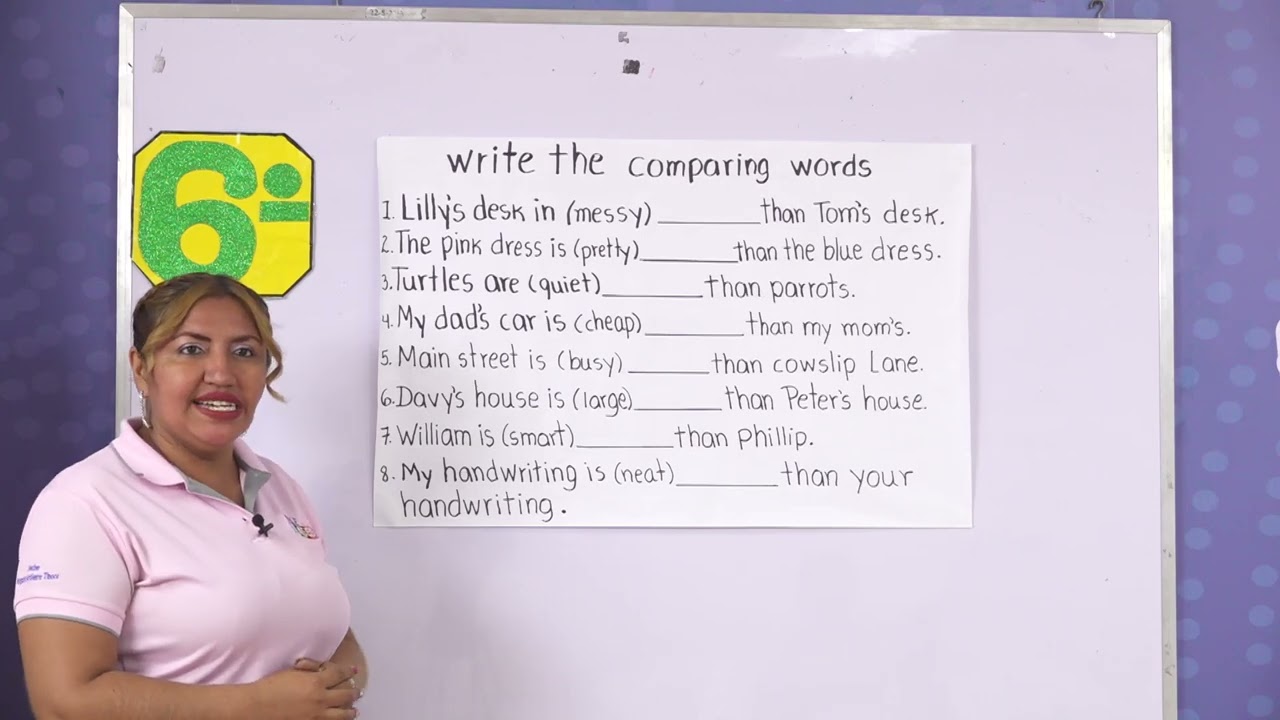 6º
write the comparing words
1. Lilly's desk in (messy) ________ than Tom's desk.
2. The pink dress is (pretty) ________ than the blue dress.
3. Turtles are (quiet) ________ than parrots.
4. My dad's car is (cheap) ________ than my mom's.
5. Main street is (busy) ________ than cowslip Lane.
6. Davy's house is (large) ________ than Peter's house.
7. William is (smart) ________ than Phillip.
8. My handwriting is (neat) ________ than your
handwriting.